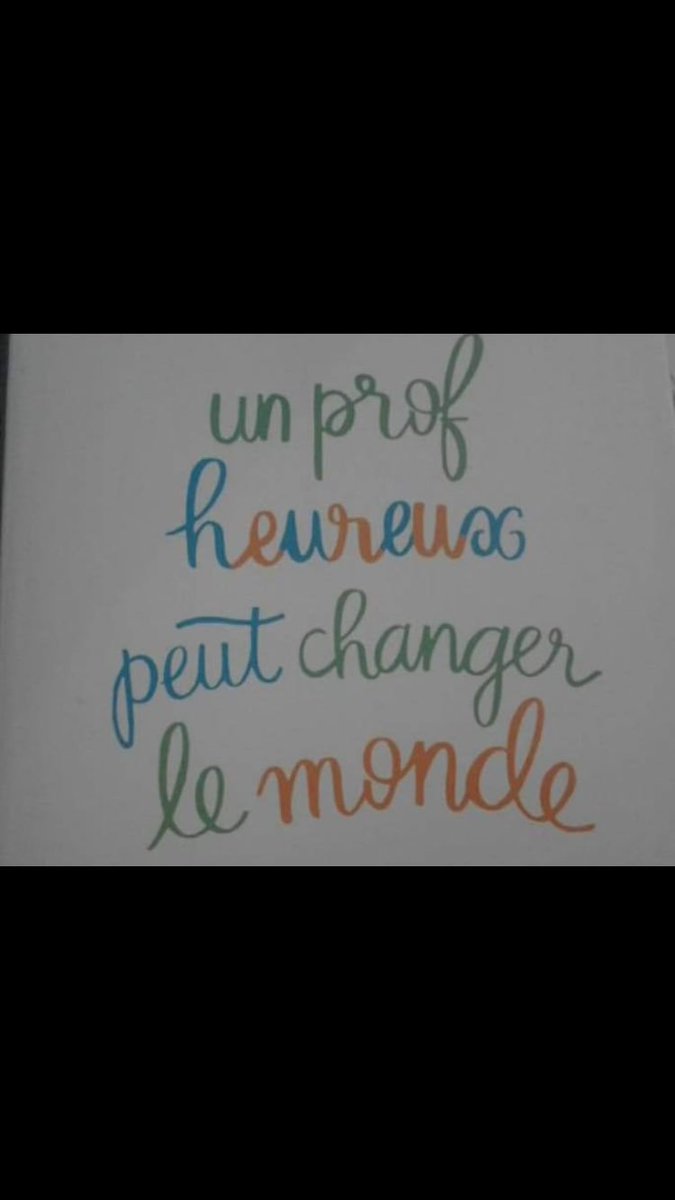 un prof
heureux
peut changer
le monde